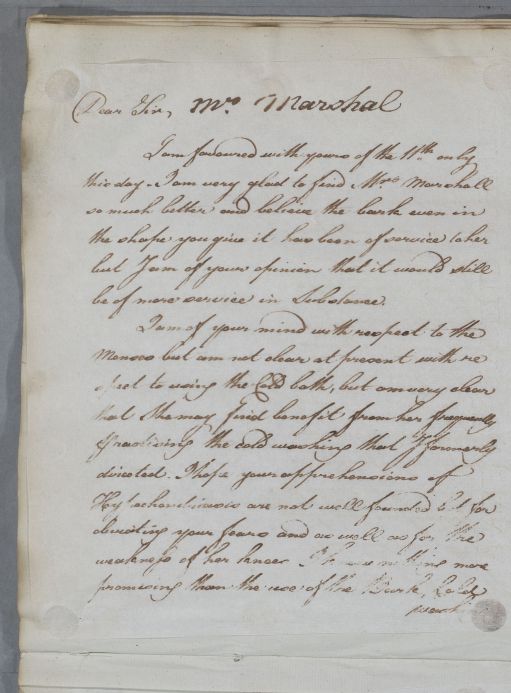 Dear Sir, Mrs Marshal
I am favoured with yours of the 11th only
this day. I am very glad to find Mrs Marshall
so much better and believe the bark even in
the shape you give it has been of service to her
but I am of your opinion that it would still
be of more service in Substance.
I am of your mind with respect to the
Menses but am not clear at present with re
spect to using the Cold bath, but am very clear
that she may find benefit from her frequently
practising the cold washing that I formerly
directed. I hope your apprehensions of
are not well founded but for
your fears and as well as for the
weakness of her knees I know nothing more
promising than the use of the Bark, Cold
wash